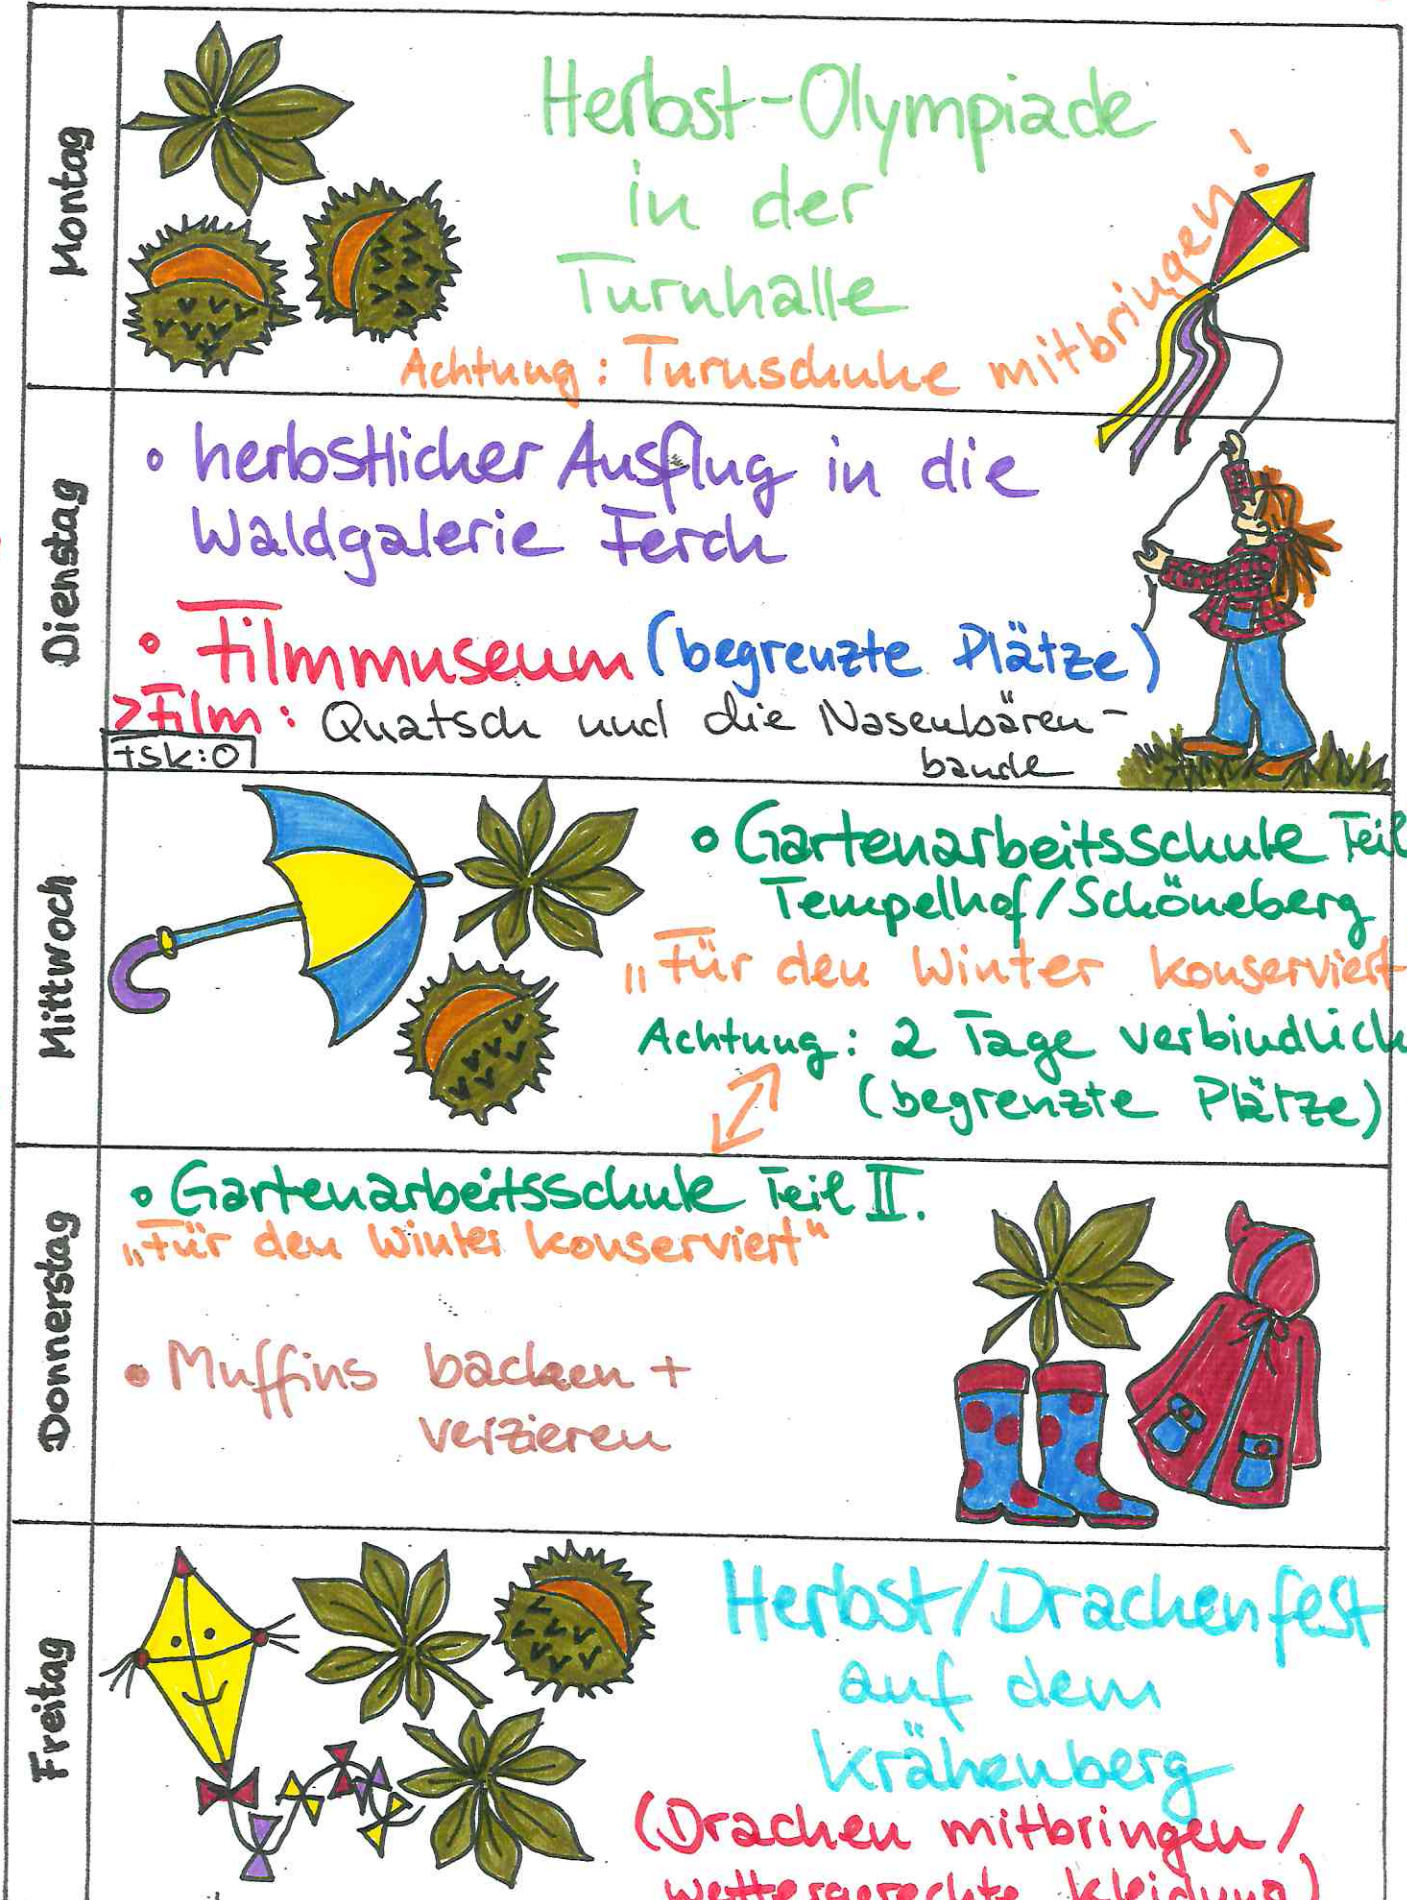 Montag
Herbst-Olympiade
in der
Turnhalle
Achtung: Turnschuhe mitbringen!
Dienstag
• herbstlicher Ausflug in die
Waldgalerie Ferch
• Filmmuseum (begrenzte Plätze)
>Film: Quatsch und die Nasenbären-
bande
FSK:0
Mittwoch
• Gartenarbeitsschule Teil
Tempelhof/Schöneberg
„Für den Winter konserviert
Achtung: 2 Tage verbindlich
(begrenzte Plätze)
Donnerstag
• Gartenarbeitsschule Teil II.
„Für den Winter konserviert“
• Muffins backen +
verzieren
Freitag
Herbst/Drachenfest
auf dem
Krähenberg
(Drachen mitbringen/
wettergerechte Kleidung)